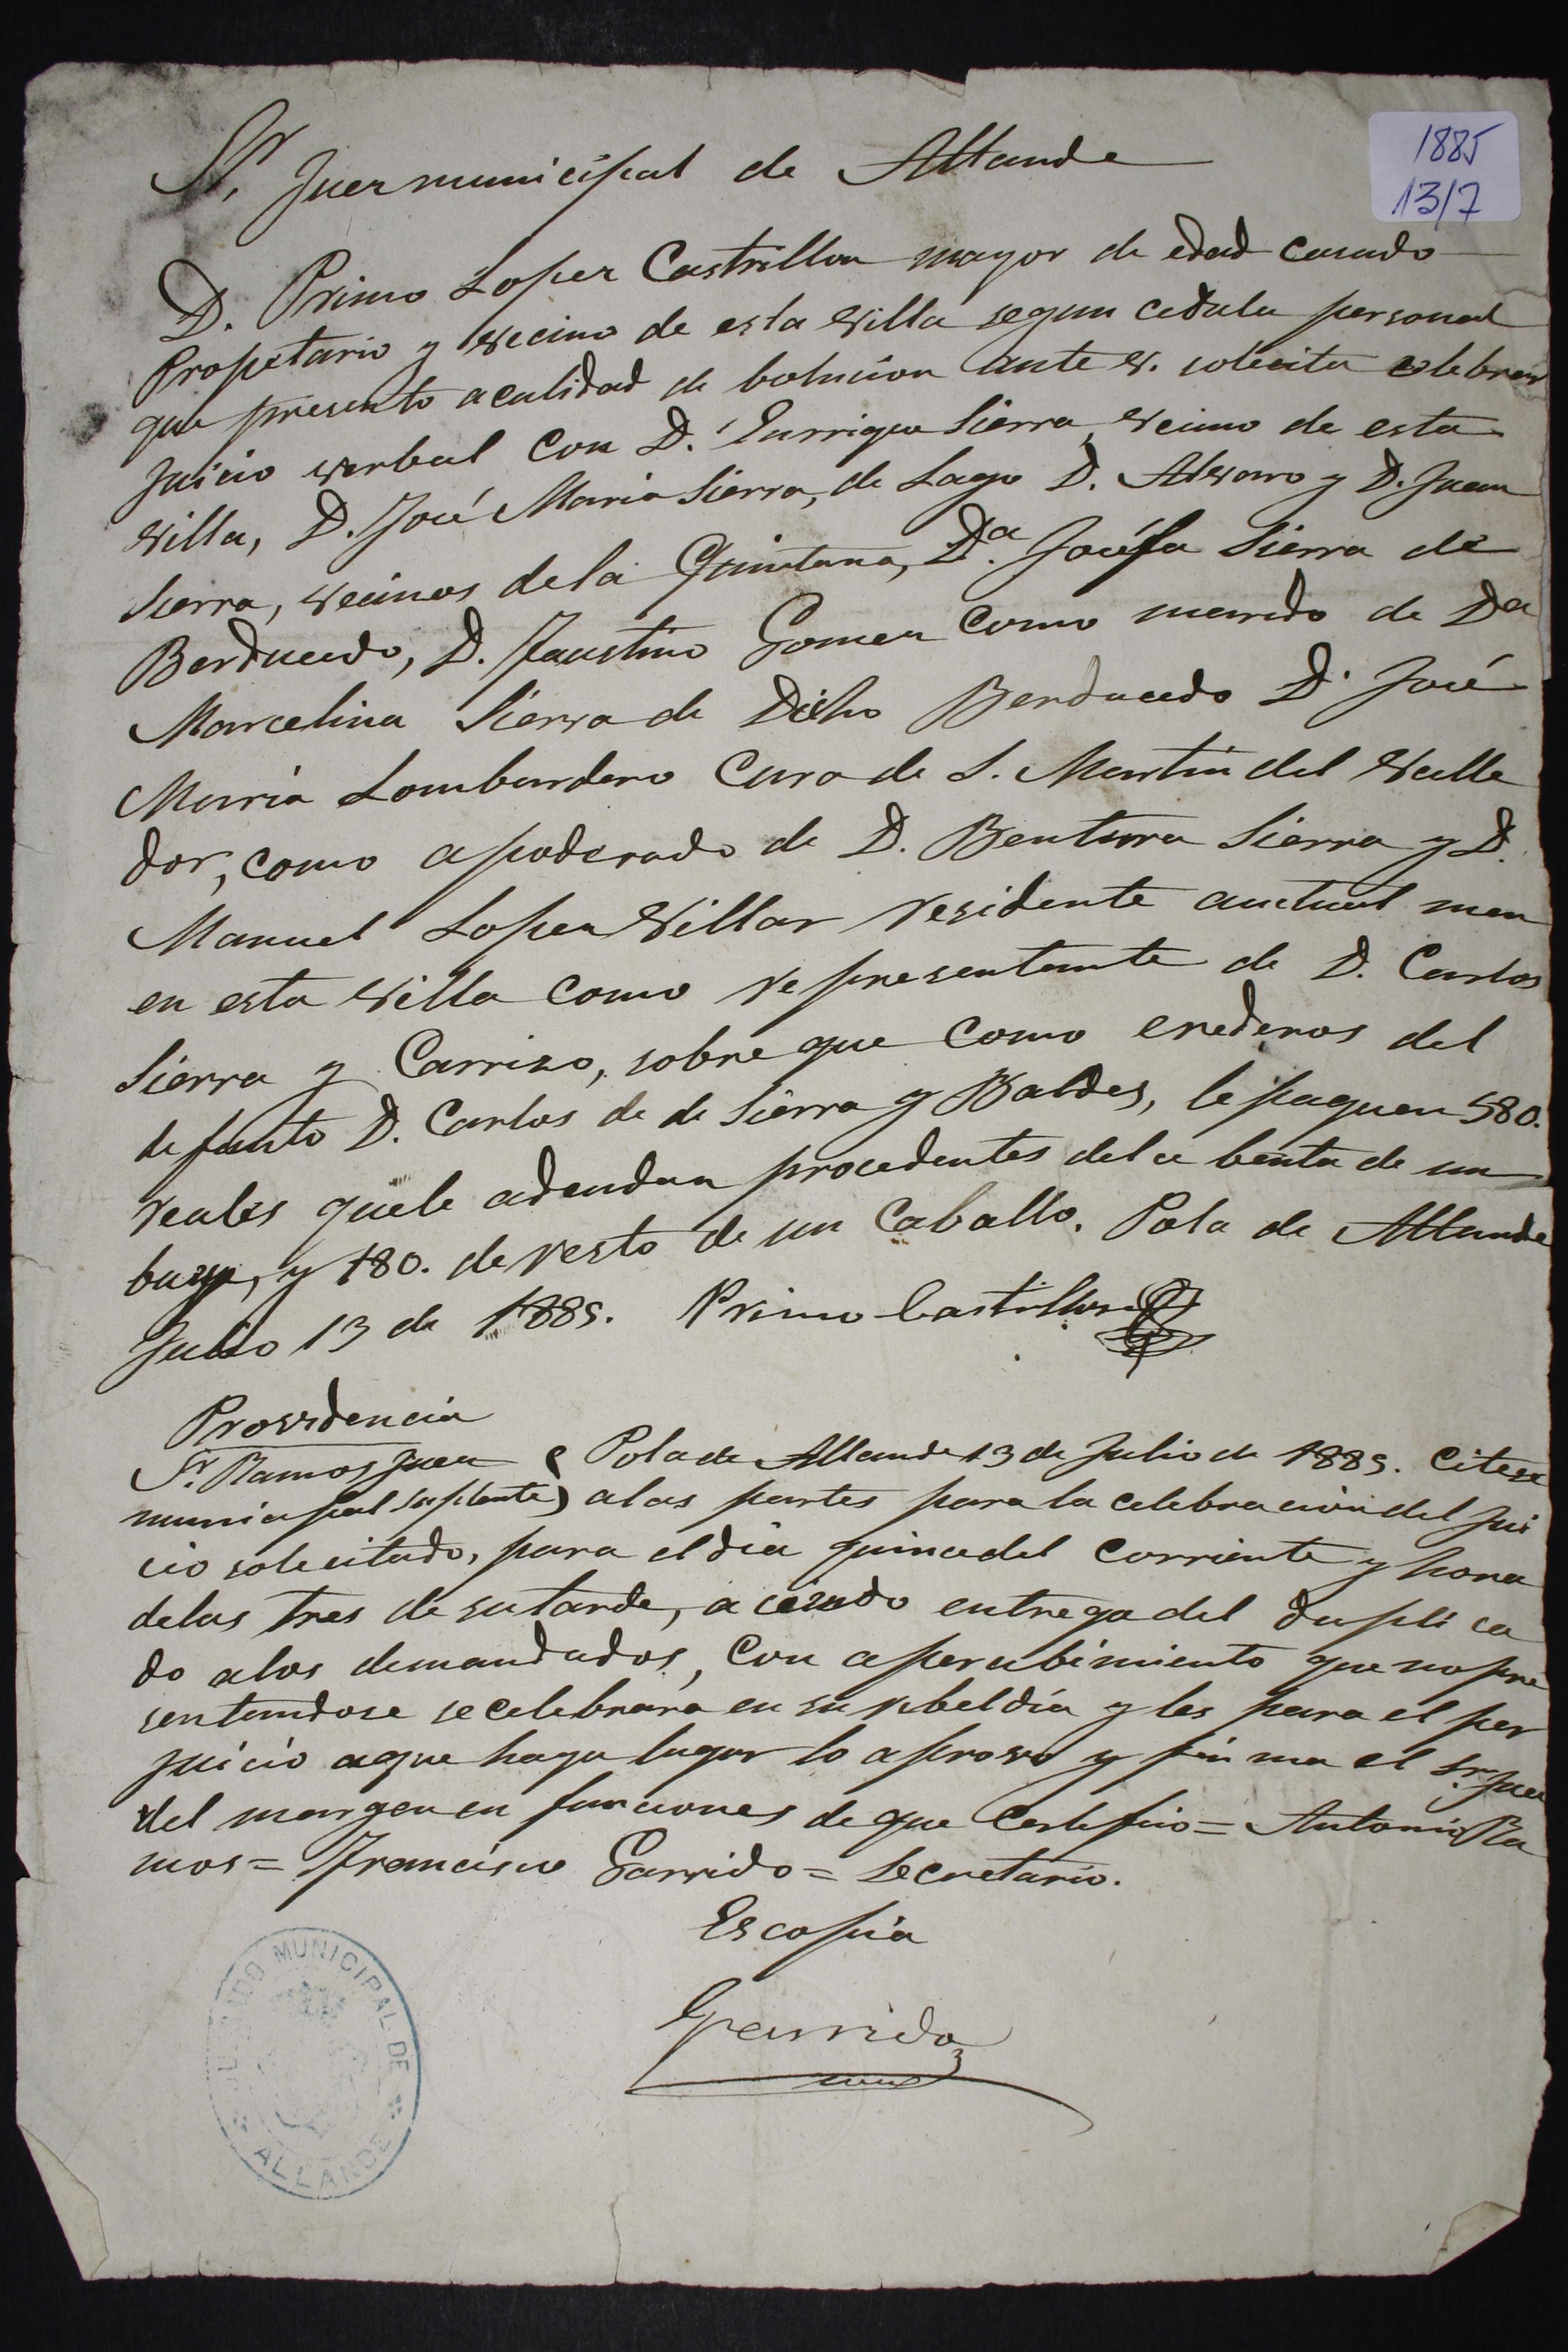 1885
13/7
Sr. Juez municipal de Allande
D. Primo Lopez Castrillon mayor de edad casado
Propetario y vecino de esta villa segun cedula personal
que presento acalidad de bolucion ante V. solecita celebrar
juicio verbal con D. Enrrique Sierra, vecino de esta
villa, D. José Maria Sierra, de Lago D. Alvaro y D. Juan
Sierra, vecinos dela Quintana, Da. Josefa Sierra de
Berducedo, D. Faustino Gomez como marido de Da
Marcelina Sierra de Dicho Berducedo D. José
María Lombardero Cura de S. Martin del Valle
dor, como apoderado de D. Bentura Sierra y D.
Manuel Lopez Villar residente auctual men
en esta villa como representante de D. Carlos
Sierra y Carrizo, sobre que como erederos del
defunto D. Carlos de de Sierra y Baldes, le paguen 580.
reales quele adeudan procedentes dela benta de un
buey, y 180. de resto de un Caballo. Pola de Allande
Julio 13 de 1885. Primo Castrillon
Providencia
Sr. Ramos Juez Pola de Allande 13 de Julio de 1885. Citese
municipal suplente) alas partes para la celebracion del Jui
cio solecitado, para el dia quince del corriente y hora
delas tres de su tarde, aciendo entrega del duplica
do alos demandados, con apercibimiento que no pre
sentandose se celebrara en su rebeldía y les para el per
juicio aque haya lugar lo aprovo y firma el Sr. Juez
del margen en funciones de que certefico = Antonio Ra
mos = Francisco Garrido = Secretario.
Es copia
Garrido
JUZGADO MUNICIPAL DE
ALLANDE